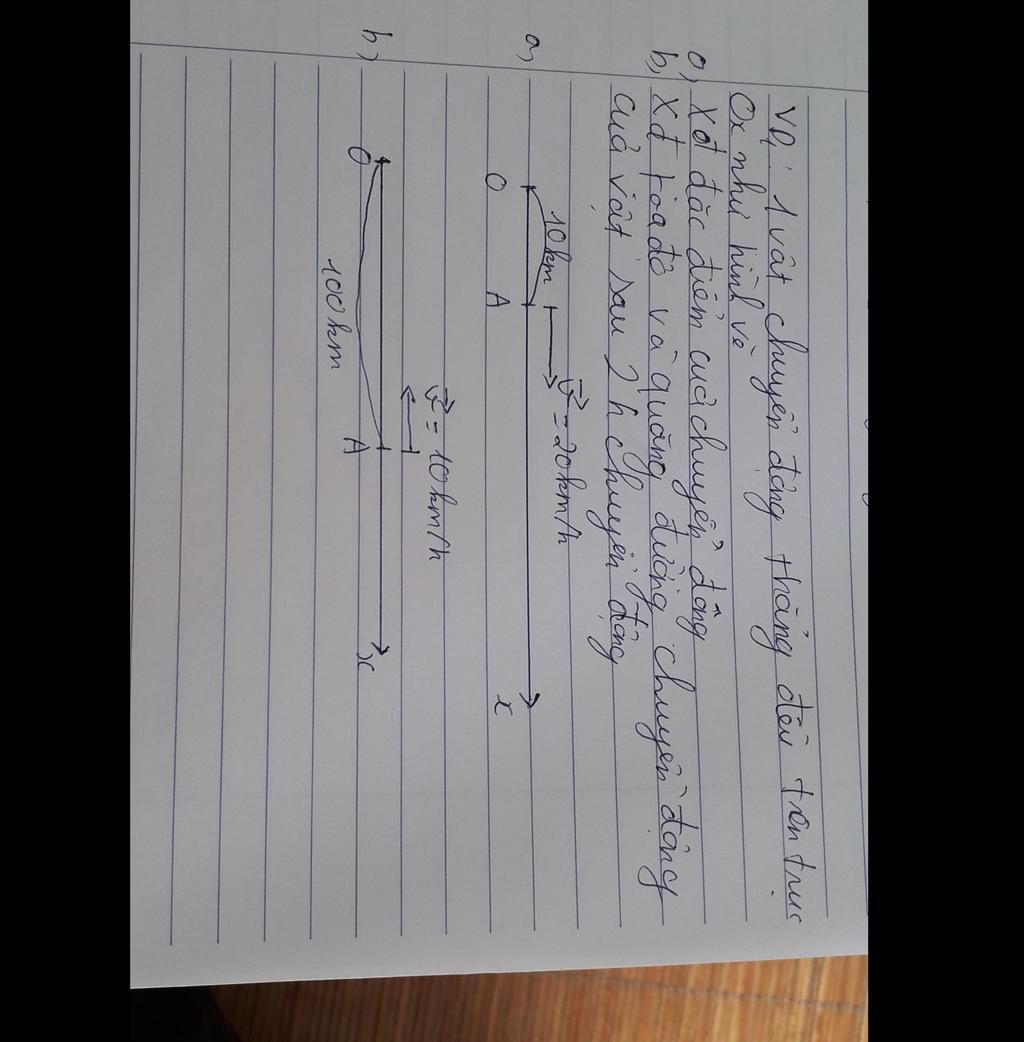 VD: 1 vật chuyển động thẳng đều trên trục
Ox như hình vẽ
a, Xđ đặc điểm của chuyển động
b, Xđ toạ độ và quãng đường chuyển động
của vật sau 2 h chuyển động
a, 10km v = 20km/h
O A x
b, v = 10km/h
O A x
100km